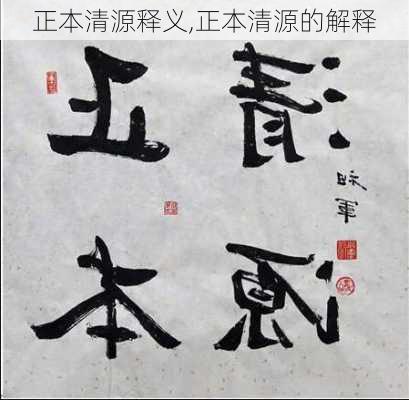 正本清源释义,正本清源的解释
正本
清源